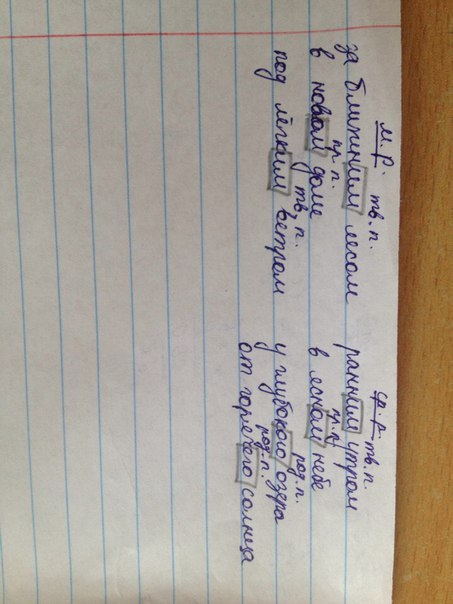 м.р.
тв.п.
за ближним лесом
пр.п.
в новом доме
тв.п.
под лёгким ветром
ср.р.
тв.п.
ранним утром
пр.п.
в ясном небе
род.п.
у глубокого озера
род.п.
от горячего солнца